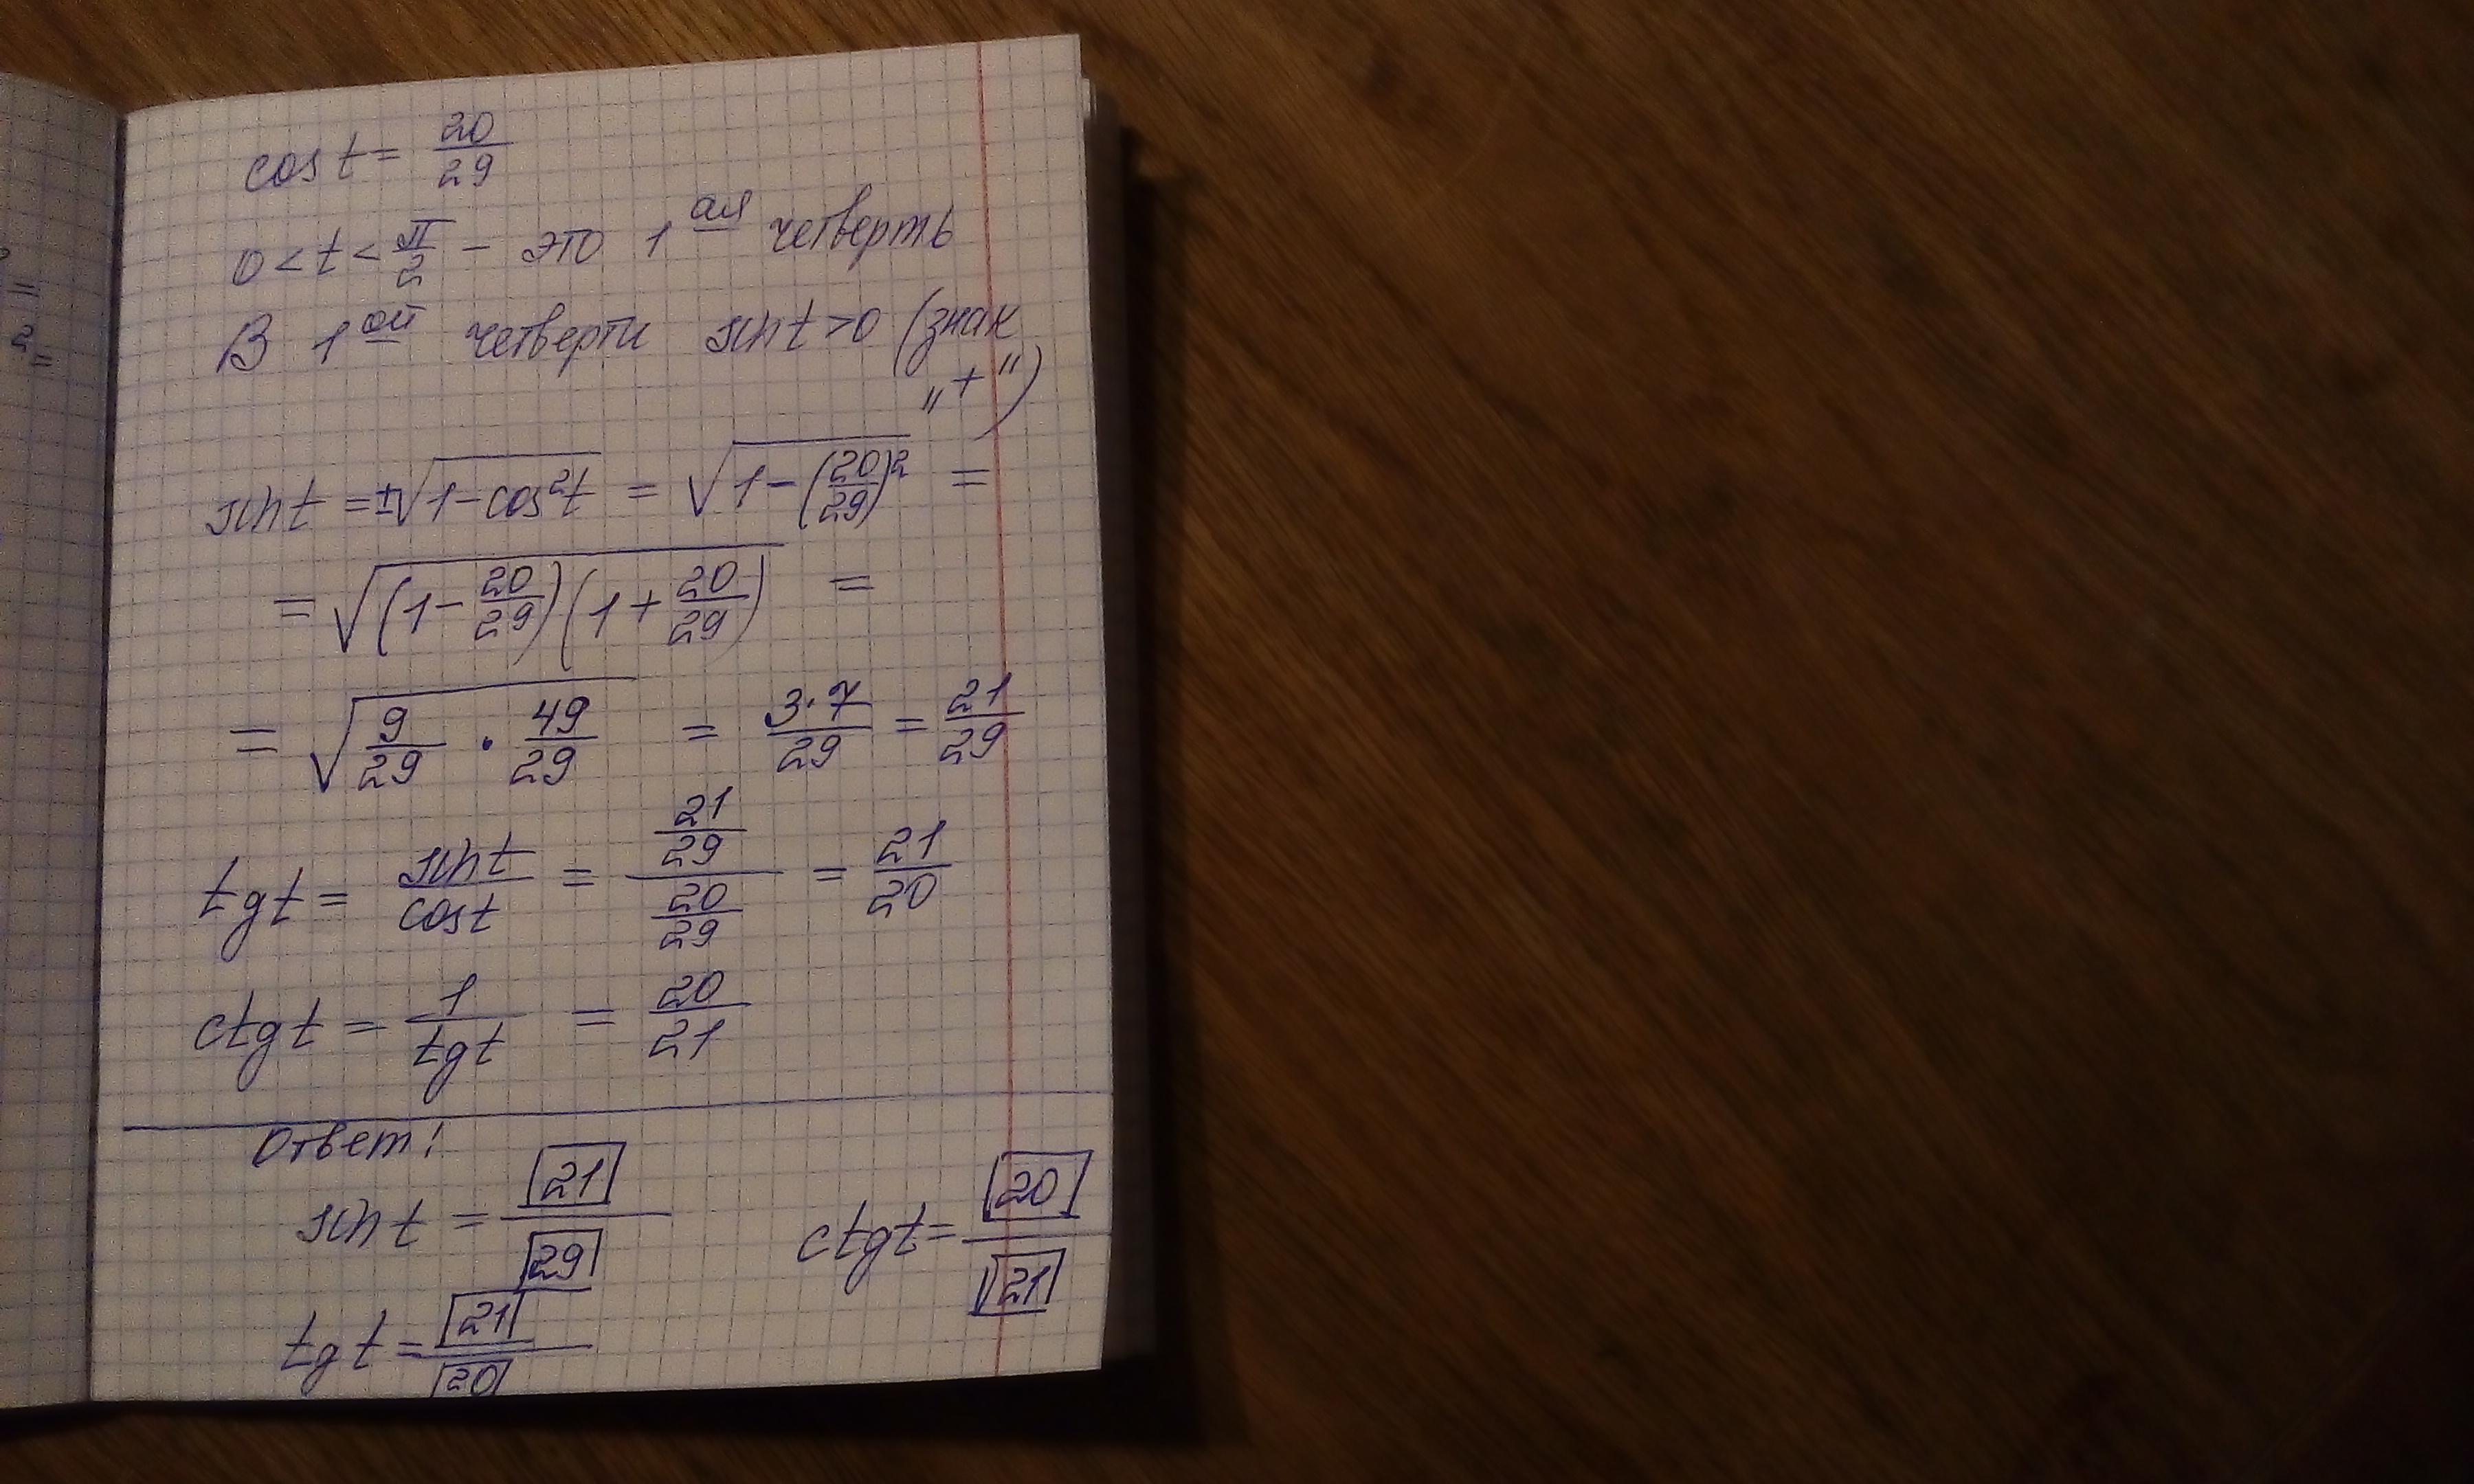 cos t = 20/29
0 < t < π/2 – это 1 ая четверть
В 1 ой четверти sin t > 0 (знак
„+“)
sin t = ±√(1 - cos²t) = √(1 - (20/29)²) =
= √((1 - 20/29)(1 + 20/29)) =
= √(9/29 · 49/29) = 3·7/29 = 21/29
tg t = sin t/cos t = (21/29)/(20/29) = 21/20
ctg t = 1/tg t = 20/21
Ответ:
sin t = 21/29
ctg t = 20/21
tg t = 21/20